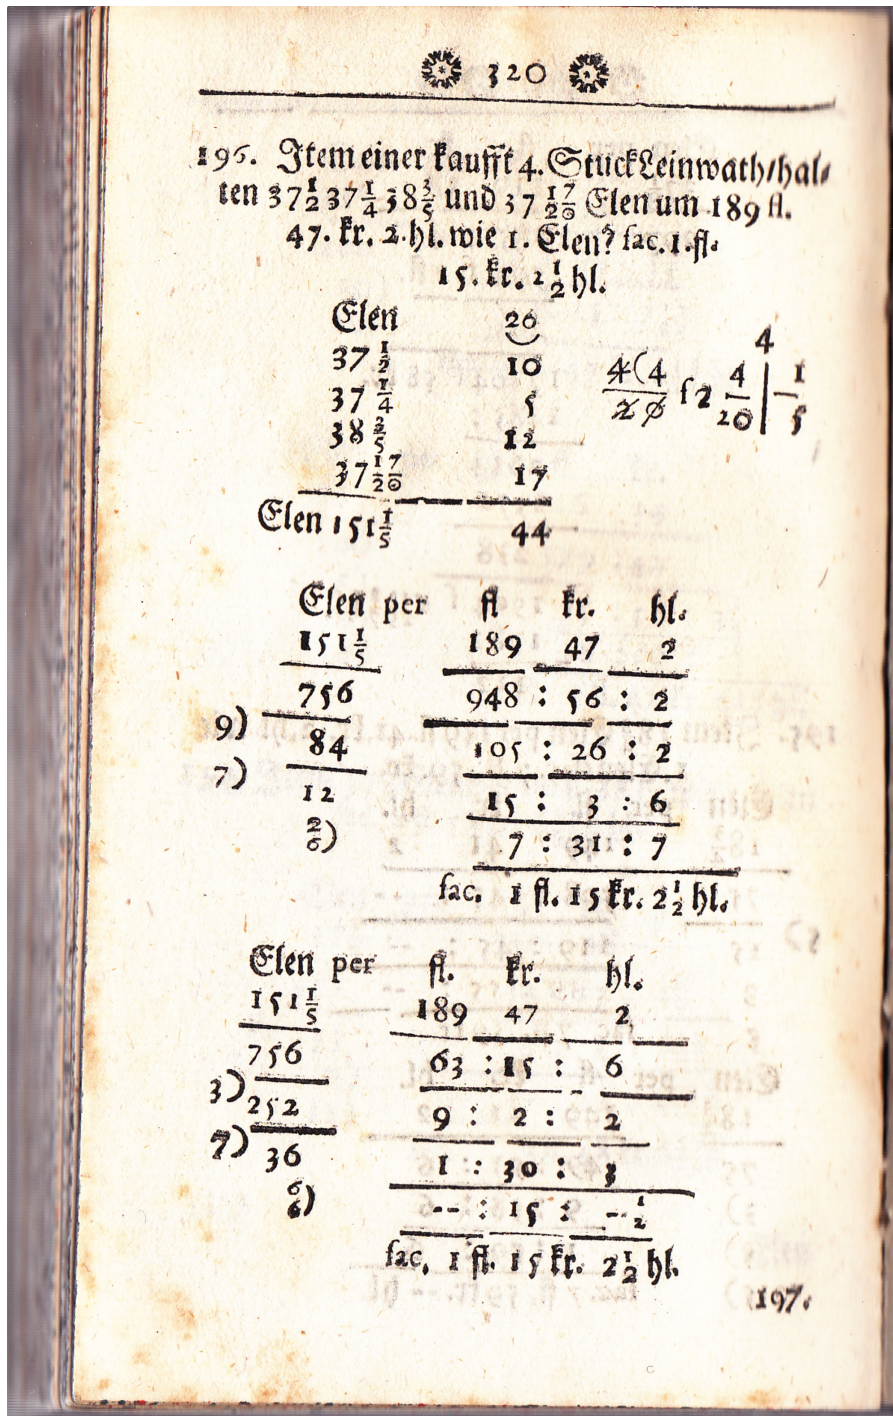 320
196. Item einer kaufft 4. Stuck Leinwath/hal-
ten 37 1/2 37 1/4 38 3/5 und 37 17/20 Elen um 189 fl.
47. kr. 2. hl. wie 1. Elen? fac. 1. fl.
15. kr. 2 1/2 hl.
Elen 20
37 1/2 10
37 1/4 5
38 3/5 12
37 17/20 17
Elen 151 1/5 44
4(4
20 f 2 4/20 | 4 1/5
Elen per fl kr. hl.
151 1/5 189 47 2
756 948 : 56 : 2
9) 84 105 : 26 : 2
7) 12 15 : 3 : 6
2/6) 7 : 31 : 7
fac. 1 fl. 15 kr. 2 1/2 hl.
Elen per fl. kr. hl.
151 1/5 189 47 2
756 63 : 15 : 6
3) 252 9 : 2 : 2
7) 36 1 : 30 : 3
6/6) -- : 15 : -- 1/2
fac. 1 fl. 15 kr. 2 1/2 hl.
197.